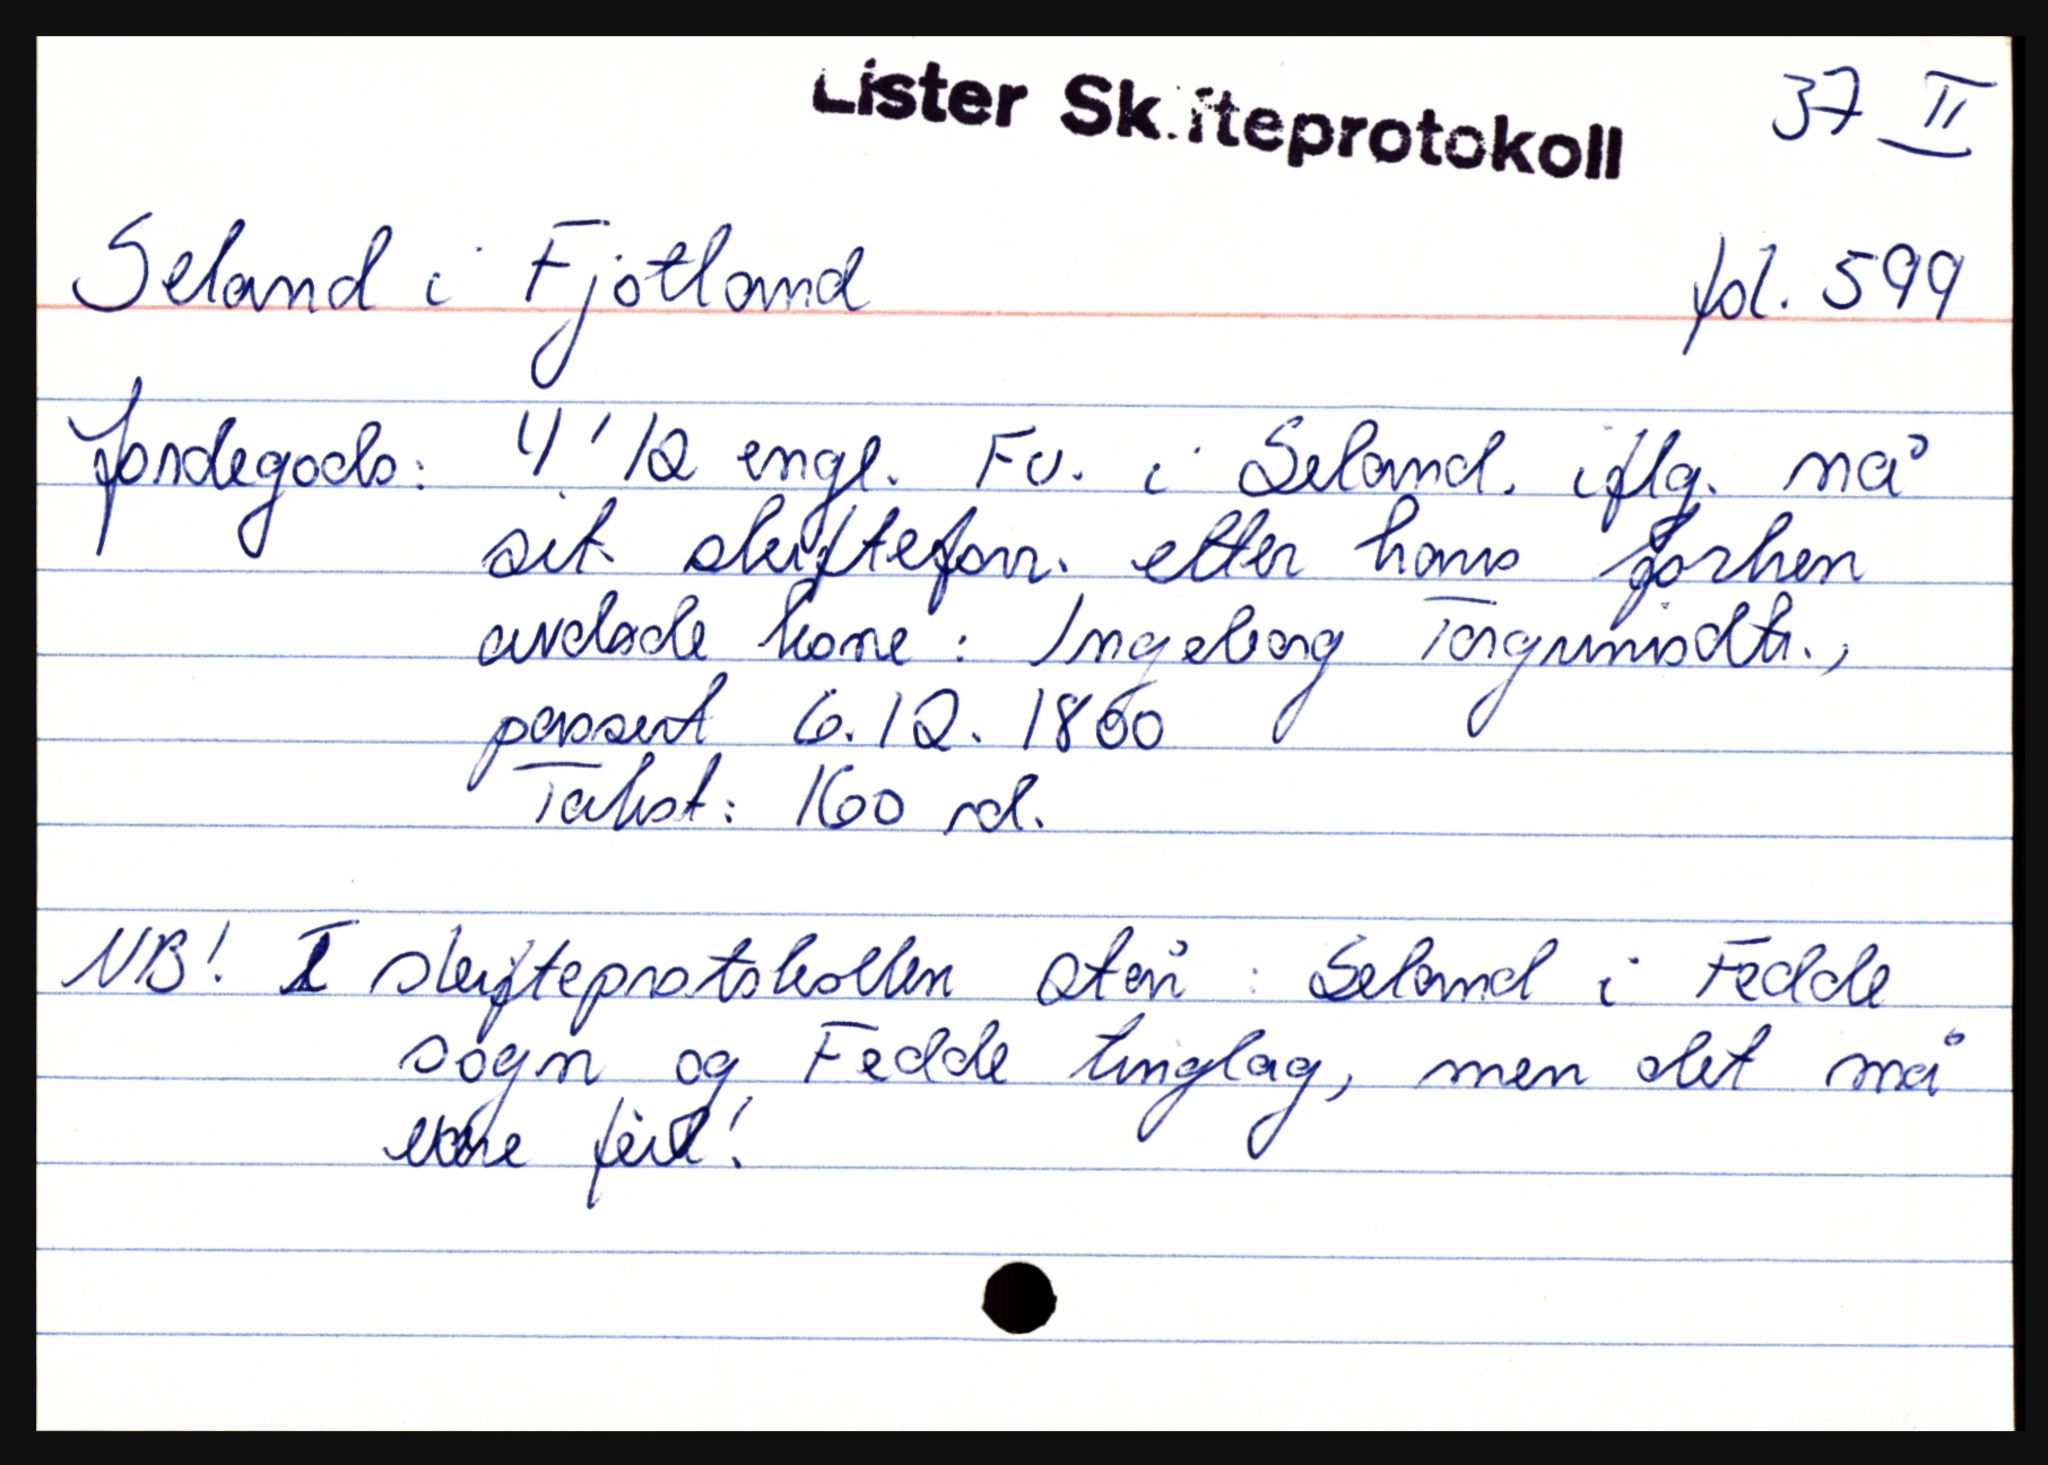 Lister Skifteprotokoll 37 II
Seland i Fjotland fol. 599
Jordegods: 4 1/2 engl. Fv. i Seland. iflg. nå
sit. skifteforr. etter hans forhen
avdøde kone: Ingeborg Torgrimsdtr.,
passert 6.12.1860
Takst: 160 rd.
NB! I skifteprotokollen står: Seland i Fedde
sogn og Fedde tinglag, men det må
være feil!